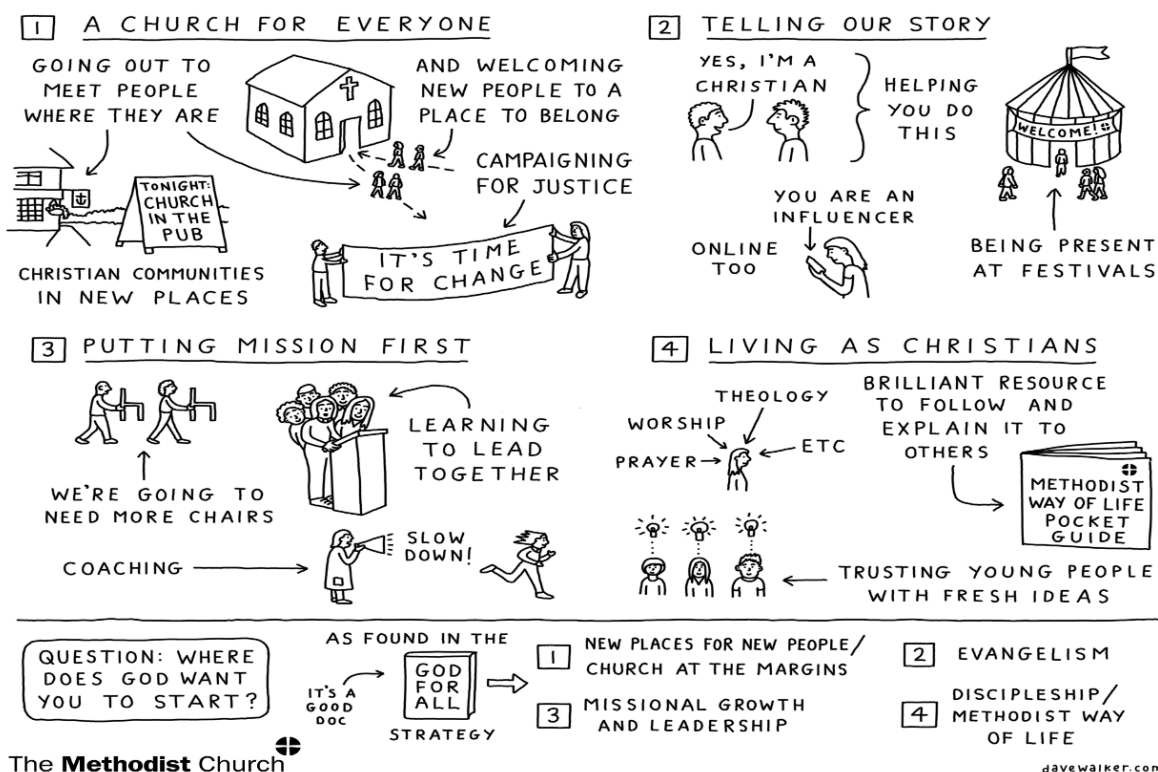 1 A CHURCH FOR EVERYONE
GOING OUT TO
MEET PEOPLE
WHERE THEY ARE
AND WELCOMING
NEW PEOPLE TO A
PLACE TO BELONG
CAMPAIGNING
FOR JUSTICE
TONIGHT:
CHURCH
IN THE
PUB
IT'S TIME
FOR CHANGE
CHRISTIAN COMMUNITIES
IN NEW PLACES
2 TELLING OUR STORY
YES, I'M A
CHRISTIAN
HELPING
YOU DO
THIS
WELCOME!
YOU ARE AN
INFLUENCER
ONLINE
TOO
BEING PRESENT
AT FESTIVALS
3 PUTTING MISSION FIRST
WE'RE GOING TO
NEED MORE CHAIRS
LEARNING
TO LEAD
TOGETHER
COACHING
SLOW
DOWN!
4 LIVING AS CHRISTIANS
THEOLOGY
WORSHIP
PRAYER
ETC
BRILLIANT RESOURCE
TO FOLLOW AND
EXPLAIN IT TO
OTHERS
METHODIST
WAY OF LIFE
POCKET
GUIDE
TRUSTING YOUNG PEOPLE
WITH FRESH IDEAS
QUESTION: WHERE
DOES GOD WANT
YOU TO START?
AS FOUND IN THE
IT'S A
GOOD
DOC
GOD
FOR
ALL
STRATEGY
1 NEW PLACES FOR NEW PEOPLE/
CHURCH AT THE MARGINS
2 EVANGELISM
3 MISSIONAL GROWTH
AND LEADERSHIP
4 DISCIPLESHIP/
METHODIST WAY
OF LIFE
The Methodist Church
davewalker.com